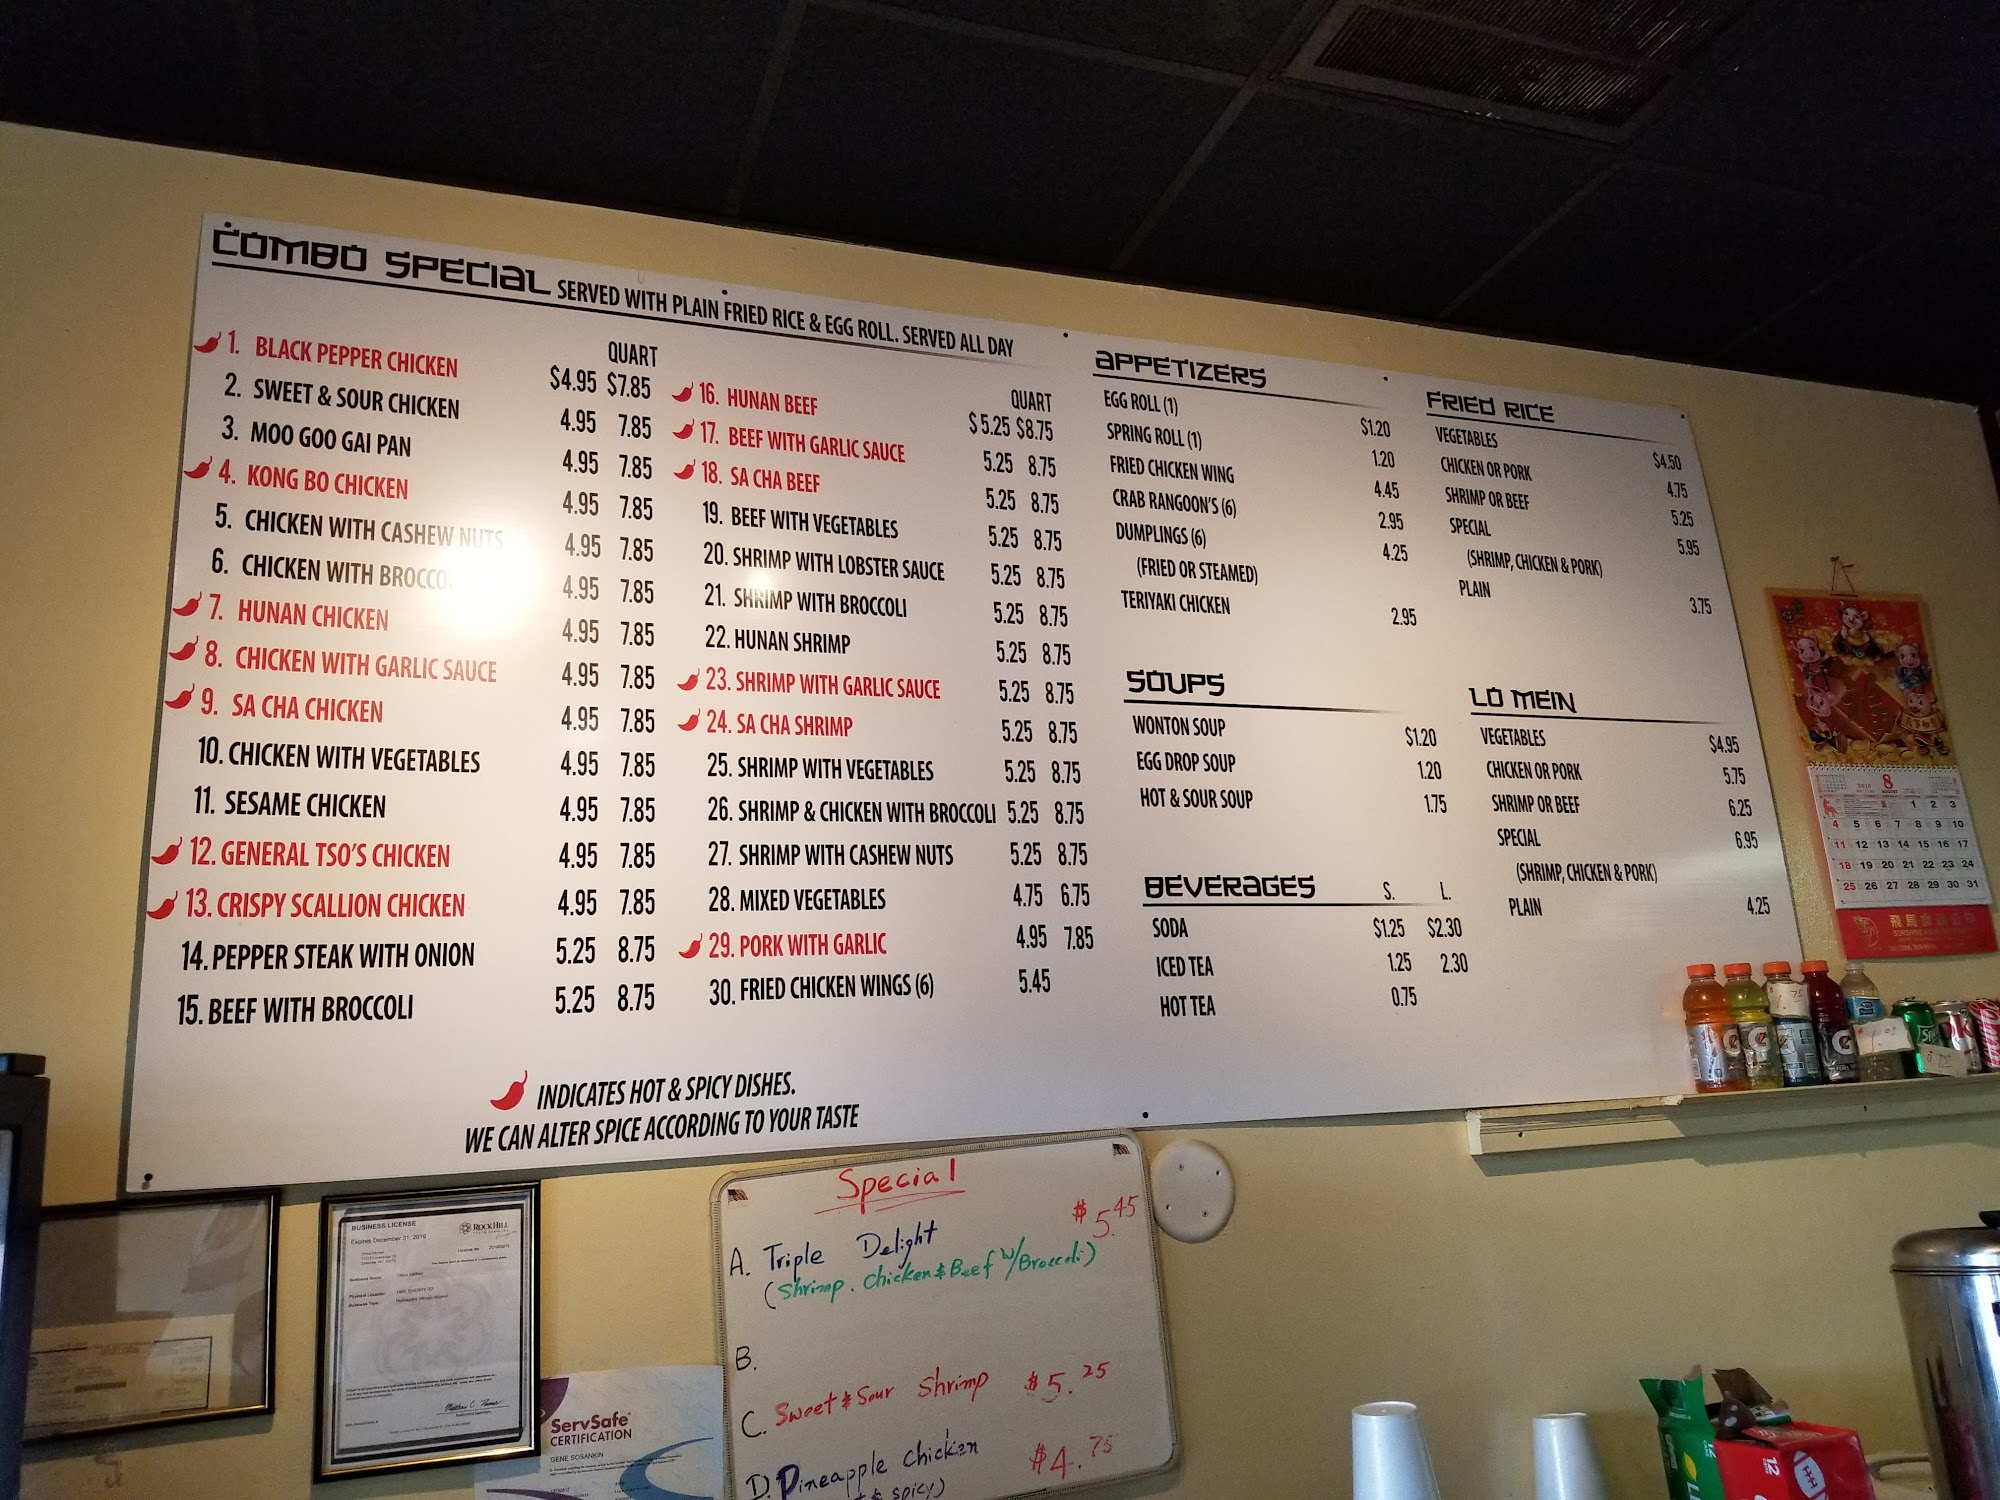 COMBO SPECIAL SERVED WITH PLAIN FRIED RICE & EGG ROLL. SERVED ALL DAY
QUART
1. BLACK PEPPER CHICKEN $4.95 $7.85
2. SWEET & SOUR CHICKEN 4.95 7.85
3. MOO GOO GAI PAN 4.95 7.85
4. KONG BO CHICKEN 4.95 7.85
5. CHICKEN WITH CASHEW NUTS 4.95 7.85
6. CHICKEN WITH BROCCO 4.95 7.85
7. HUNAN CHICKEN 4.95 7.85
8. CHICKEN WITH GARLIC SAUCE 4.95 7.85
9. SA CHA CHICKEN 4.95 7.85
10. CHICKEN WITH VEGETABLES 4.95 7.85
11. SESAME CHICKEN 4.95 7.85
12. GENERAL TSO'S CHICKEN 4.95 7.85
13. CRISPY SCALLION CHICKEN 4.95 7.85
14. PEPPER STEAK WITH ONION 5.25 8.75
15. BEEF WITH BROCCOLI 5.25 8.75
QUART
16. HUNAN BEEF $5.25 $8.75
17. BEEF WITH GARLIC SAUCE 5.25 8.75
18. SA CHA BEEF 5.25 8.75
19. BEEF WITH VEGETABLES 5.25 8.75
20. SHRIMP WITH LOBSTER SAUCE 5.25 8.75
21. SHRIMP WITH BROCCOLI 5.25 8.75
22. HUNAN SHRIMP 5.25 8.75
23. SHRIMP WITH GARLIC SAUCE 5.25 8.75
24. SA CHA SHRIMP 5.25 8.75
25. SHRIMP WITH VEGETABLES 5.25 8.75
26. SHRIMP & CHICKEN WITH BROCCOLI 5.25 8.75
27. SHRIMP WITH CASHEW NUTS 5.25 8.75
28. MIXED VEGETABLES 4.75 6.75
29. PORK WITH GARLIC 4.95 7.85
30. FRIED CHICKEN WINGS (6) 5.45
INDICATES HOT & SPICY DISHES.
WE CAN ALTER SPICE ACCORDING TO YOUR TASTE
APPETIZERS
EGG ROLL (1) $1.20
SPRING ROLL (1) 1.20
FRIED CHICKEN WING 4.45
CRAB RANGOON'S (6) 2.95
DUMPLINGS (6) 4.25
(FRIED OR STEAMED)
TERIYAKI CHICKEN 2.95
SOUPS
WONTON SOUP $1.20
EGG DROP SOUP 1.20
HOT & SOUR SOUP 1.75
BEVERAGES S. L.
SODA $1.25 $2.30
ICED TEA 1.25 2.30
HOT TEA 0.75
FRIED RICE
VEGETABLES $4.50
CHICKEN OR PORK 4.75
SHRIMP OR BEEF 5.25
SPECIAL 5.95
(SHRIMP, CHICKEN & PORK)
PLAIN 3.75
LO MEIN
VEGETABLES $4.95
CHICKEN OR PORK 5.75
SHRIMP OR BEEF 6.25
SPECIAL 6.95
(SHRIMP, CHICKEN & PORK)
PLAIN 4.25
8
1 2 3
4 5 6 7 8 9 10
11 12 13 14 15 16 17
18 19 20 21 22 23 24
25 26 27 28 29 30 31
Special
A. Triple Delight $5.45
(Shrimp. Chicken & Beef w/Broccoli)
B.
C. Sweet & Sour Shrimp $5.25
D. Pineapple Chicken $4.75
& spicy)
BUSINESS LICENSE
Expires December 31, 2019
ROCK HILL
Business Name
Physical Location
Business Type
ServSafe
CERTIFICATION
GENE SOSANKIN
12